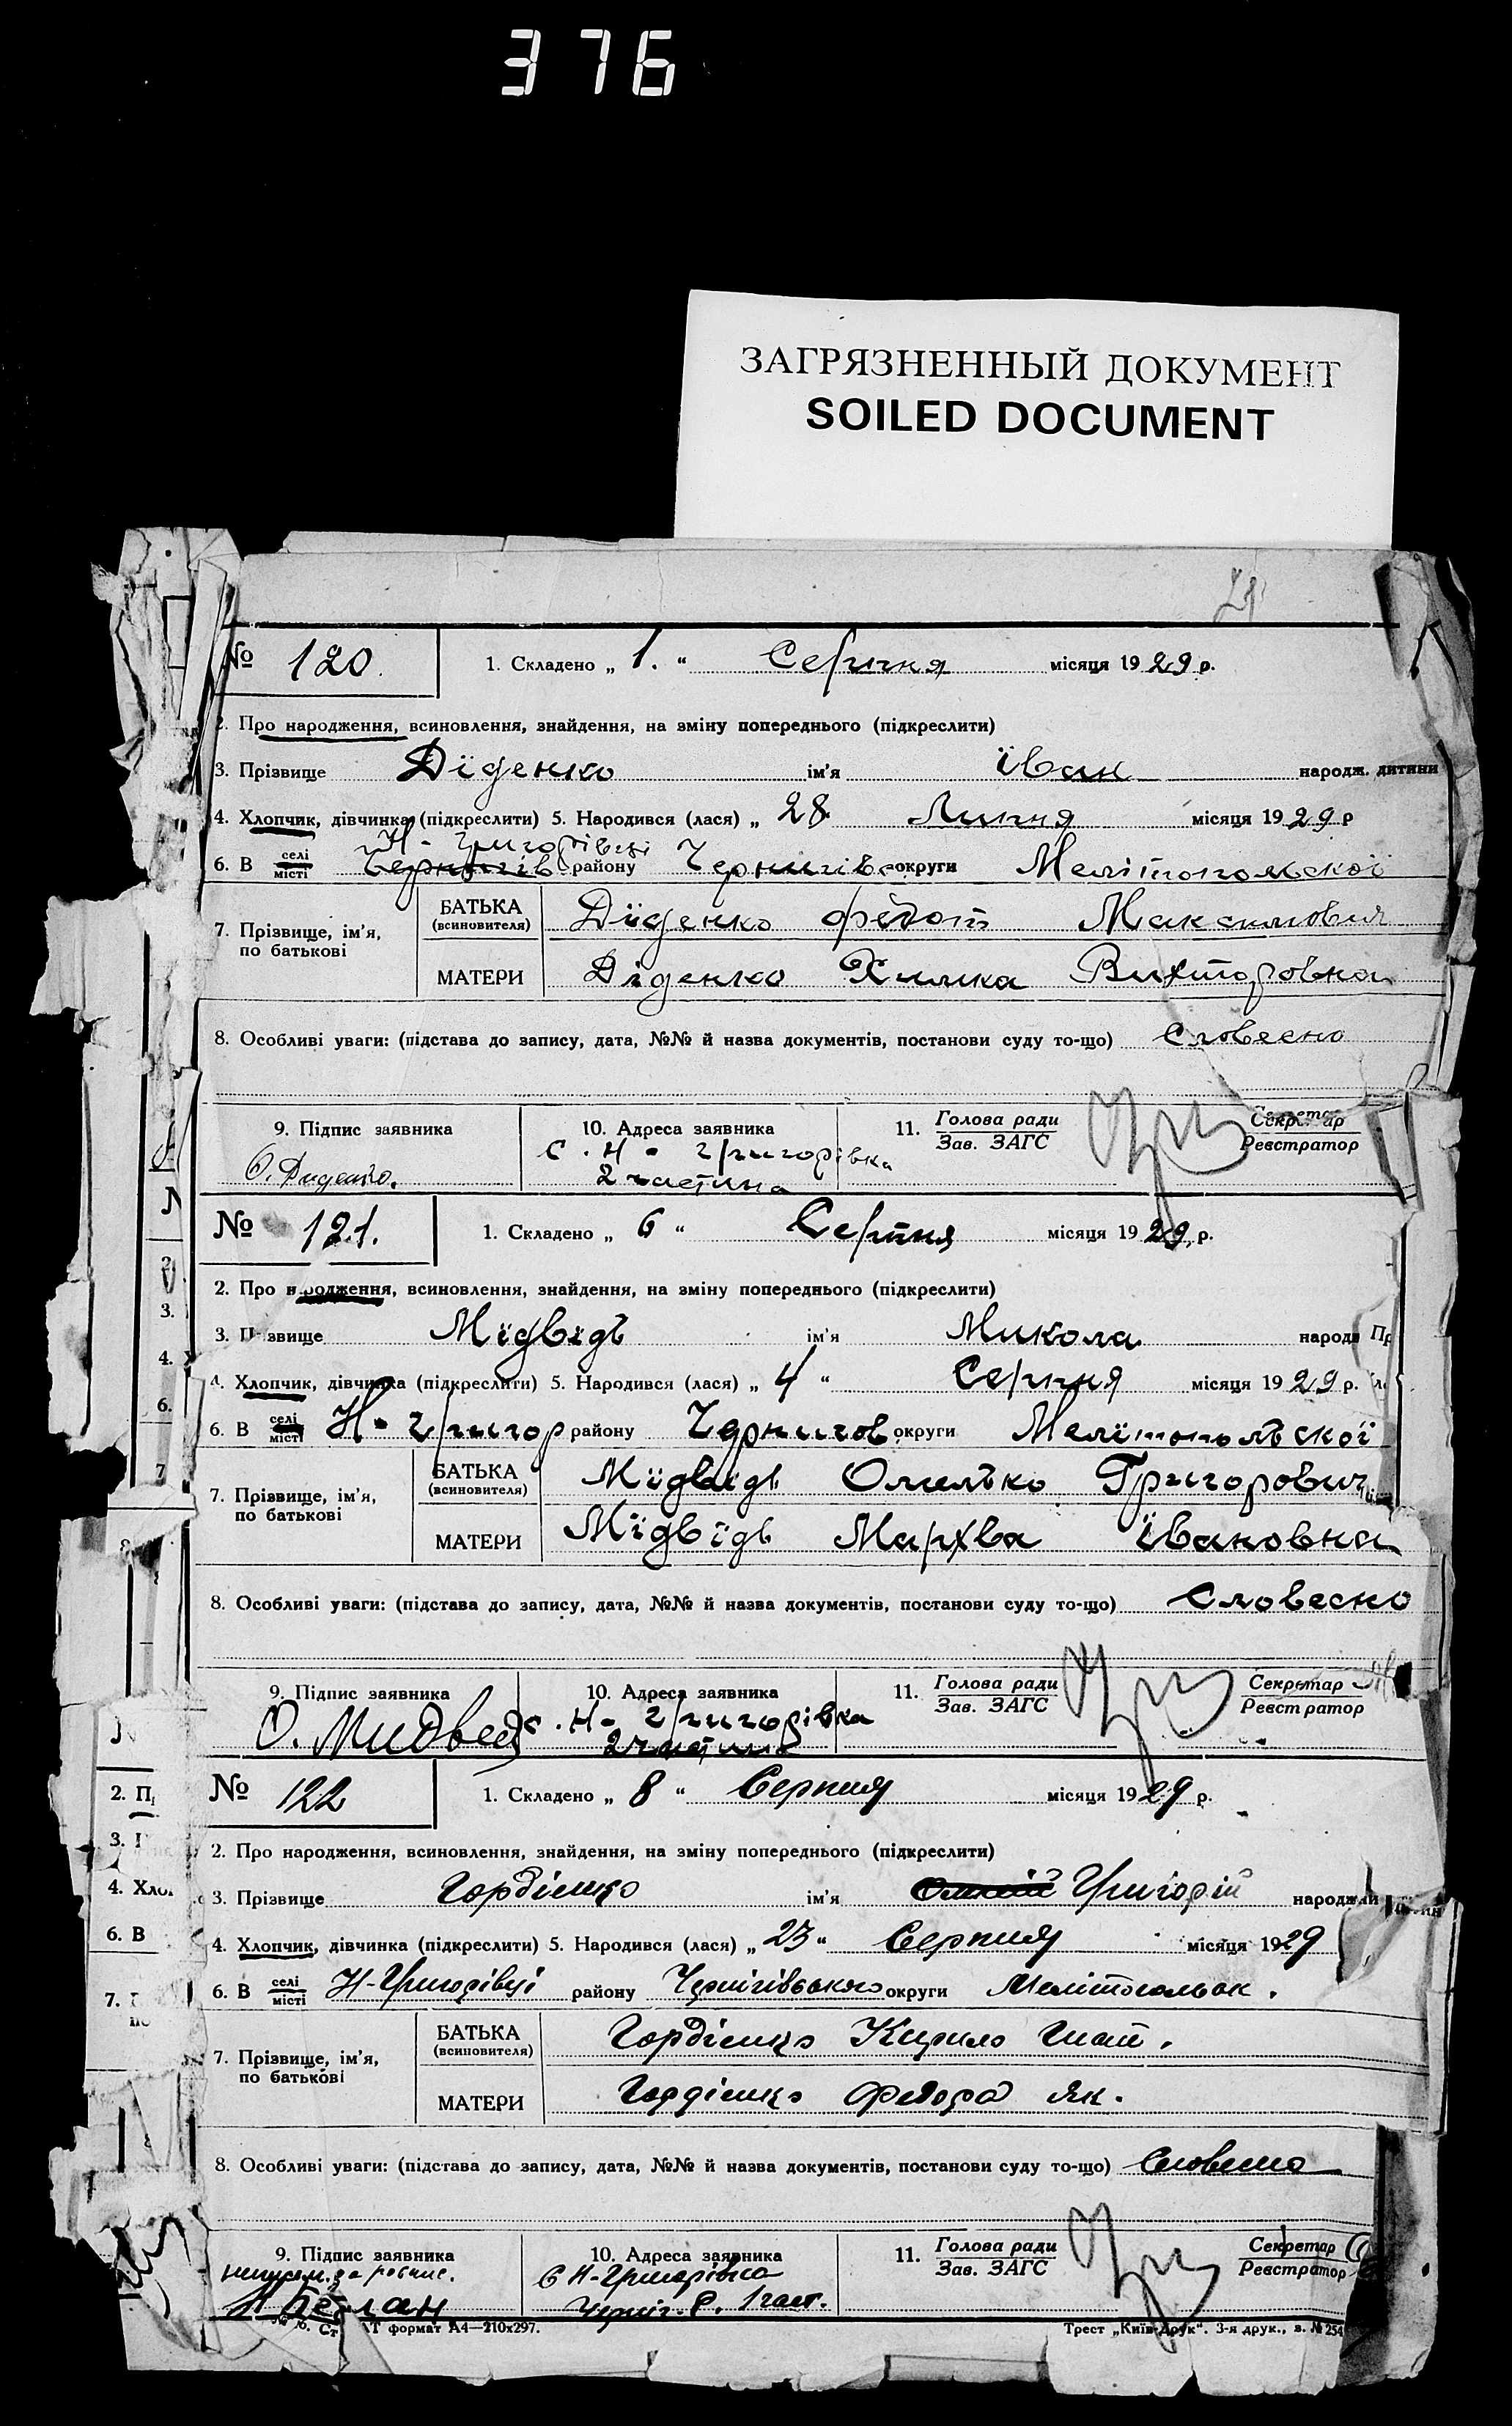 376
ЗАГРЯЗНЕННЫЙ ДОКУМЕНТ
SOILED DOCUMENT
№ 120. 1. Складено „ 1. “ Серпня місяця 1929 р.
2. Про народження, всиновлення, знайдення, на зміну попереднього (підкреслити)
3. Прізвище Діденко ім'я Їван народж. дитини
4. Хлопчик, дівчинка (підкреслити) 5. Народився (лася) „ 28 Липня місяця 1929 р
Н-Григорівці
6. В селі місті Чернигів району Чернигівс округи Мелітопольскої
7. Прізвище, ім'я, по батькові
БАТЬКА (всиновителя) Діденко Федот Максимович
МАТЕРИ Діденко Килина Вихторовна
8. Особливі уваги: (підстава до запису, дата, №№ й назва документів, постанови суду то-що) Словесно
9. Підпис заявника 10. Адреса заявника 11. Голова ради Зав. ЗАГС Секретар Реєстратор
О. Диденко. с. Н-Григорівка
2 частина
№ 121. 1. Складено „ 6 “ Серпня місяця 1929 р.
2. Про народження, всиновлення, знайдення, на зміну попереднього (підкреслити)
3. Прізвище Мїдвїдь ім'я Микола народ
4. Хлопчик, дівчинка (підкреслити) 5. Народився (лася) „ 4 “ Серпня місяця 1929 р.
6. В селі місті Н-Григор району Чернигов округи Мелїтопольскої
7. Прізвище, ім'я, по батькові
БАТЬКА (всиновителя) Мїдвїдь Омелько Григорович
МАТЕРИ Мїдвїдь Мархва Ївановна
8. Особливі уваги: (підстава до запису, дата, №№ й назва документів, постанови суду то-що) Словесно
9. Підпис заявника 10. Адреса заявника 11. Голова ради Зав. ЗАГС Секретар Реєстратор
О. Мидведь с. Н-Григорівка
2 частина
№ 122 1. Складено „ 8 “ Серпня місяця 1929 р.
2. Про народження, всиновлення, знайдення, на зміну попереднього (підкреслити)
3. Прізвище Гордієнко ім'я Григорій народж
4. Хлопчик, дівчинка (підкреслити) 5. Народився (лася) „ 23 “ Серпня місяця 1929
6. В селі місті Н-Григорівці району Чернігівського округи Мелітопольск.
7. Прізвище, ім'я, по батькові
БАТЬКА (всиновителя) Гордієнко Кирило Гнат.
МАТЕРИ Гордієнко Федора Як.
8. Особливі уваги: (підстава до запису, дата, №№ й назва документів, постанови суду то-що) Словесно
9. Підпис заявника 10. Адреса заявника 11. Голова ради Зав. ЗАГС Секретар Реєстратор
неписьм. за росписі. с Н-Григорівка
Черніг. Р. 1 част.
формат А4—210х297. Трест „Київ-Друк“. 3-я друк., з. № 254